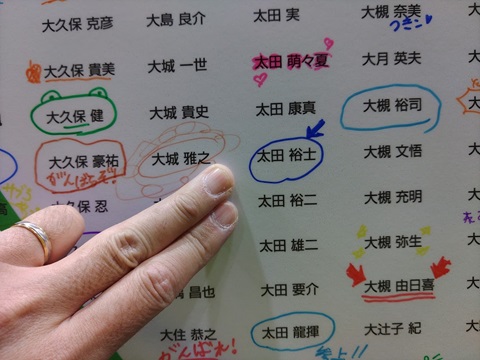 大久保 克彦
大久保 貴美
大久保 健
大久保 豪祐
がんばるぞ!
大久保 忍
大島 良介
大城 一世
大城 貴史
大城 雅之
昌也
大住 恭之
がんばれ!
太田 実
太田 萌々夏
太田 康真
太田 裕士
太田 裕二
太田 雄二
大田 要介
太田 龍揮
大槻 奈美
つきン
大月 英夫
大槻 裕司
大槻 文悟
大槻 充明
大槻 弥生
大槻 由日喜
大辻子 紀